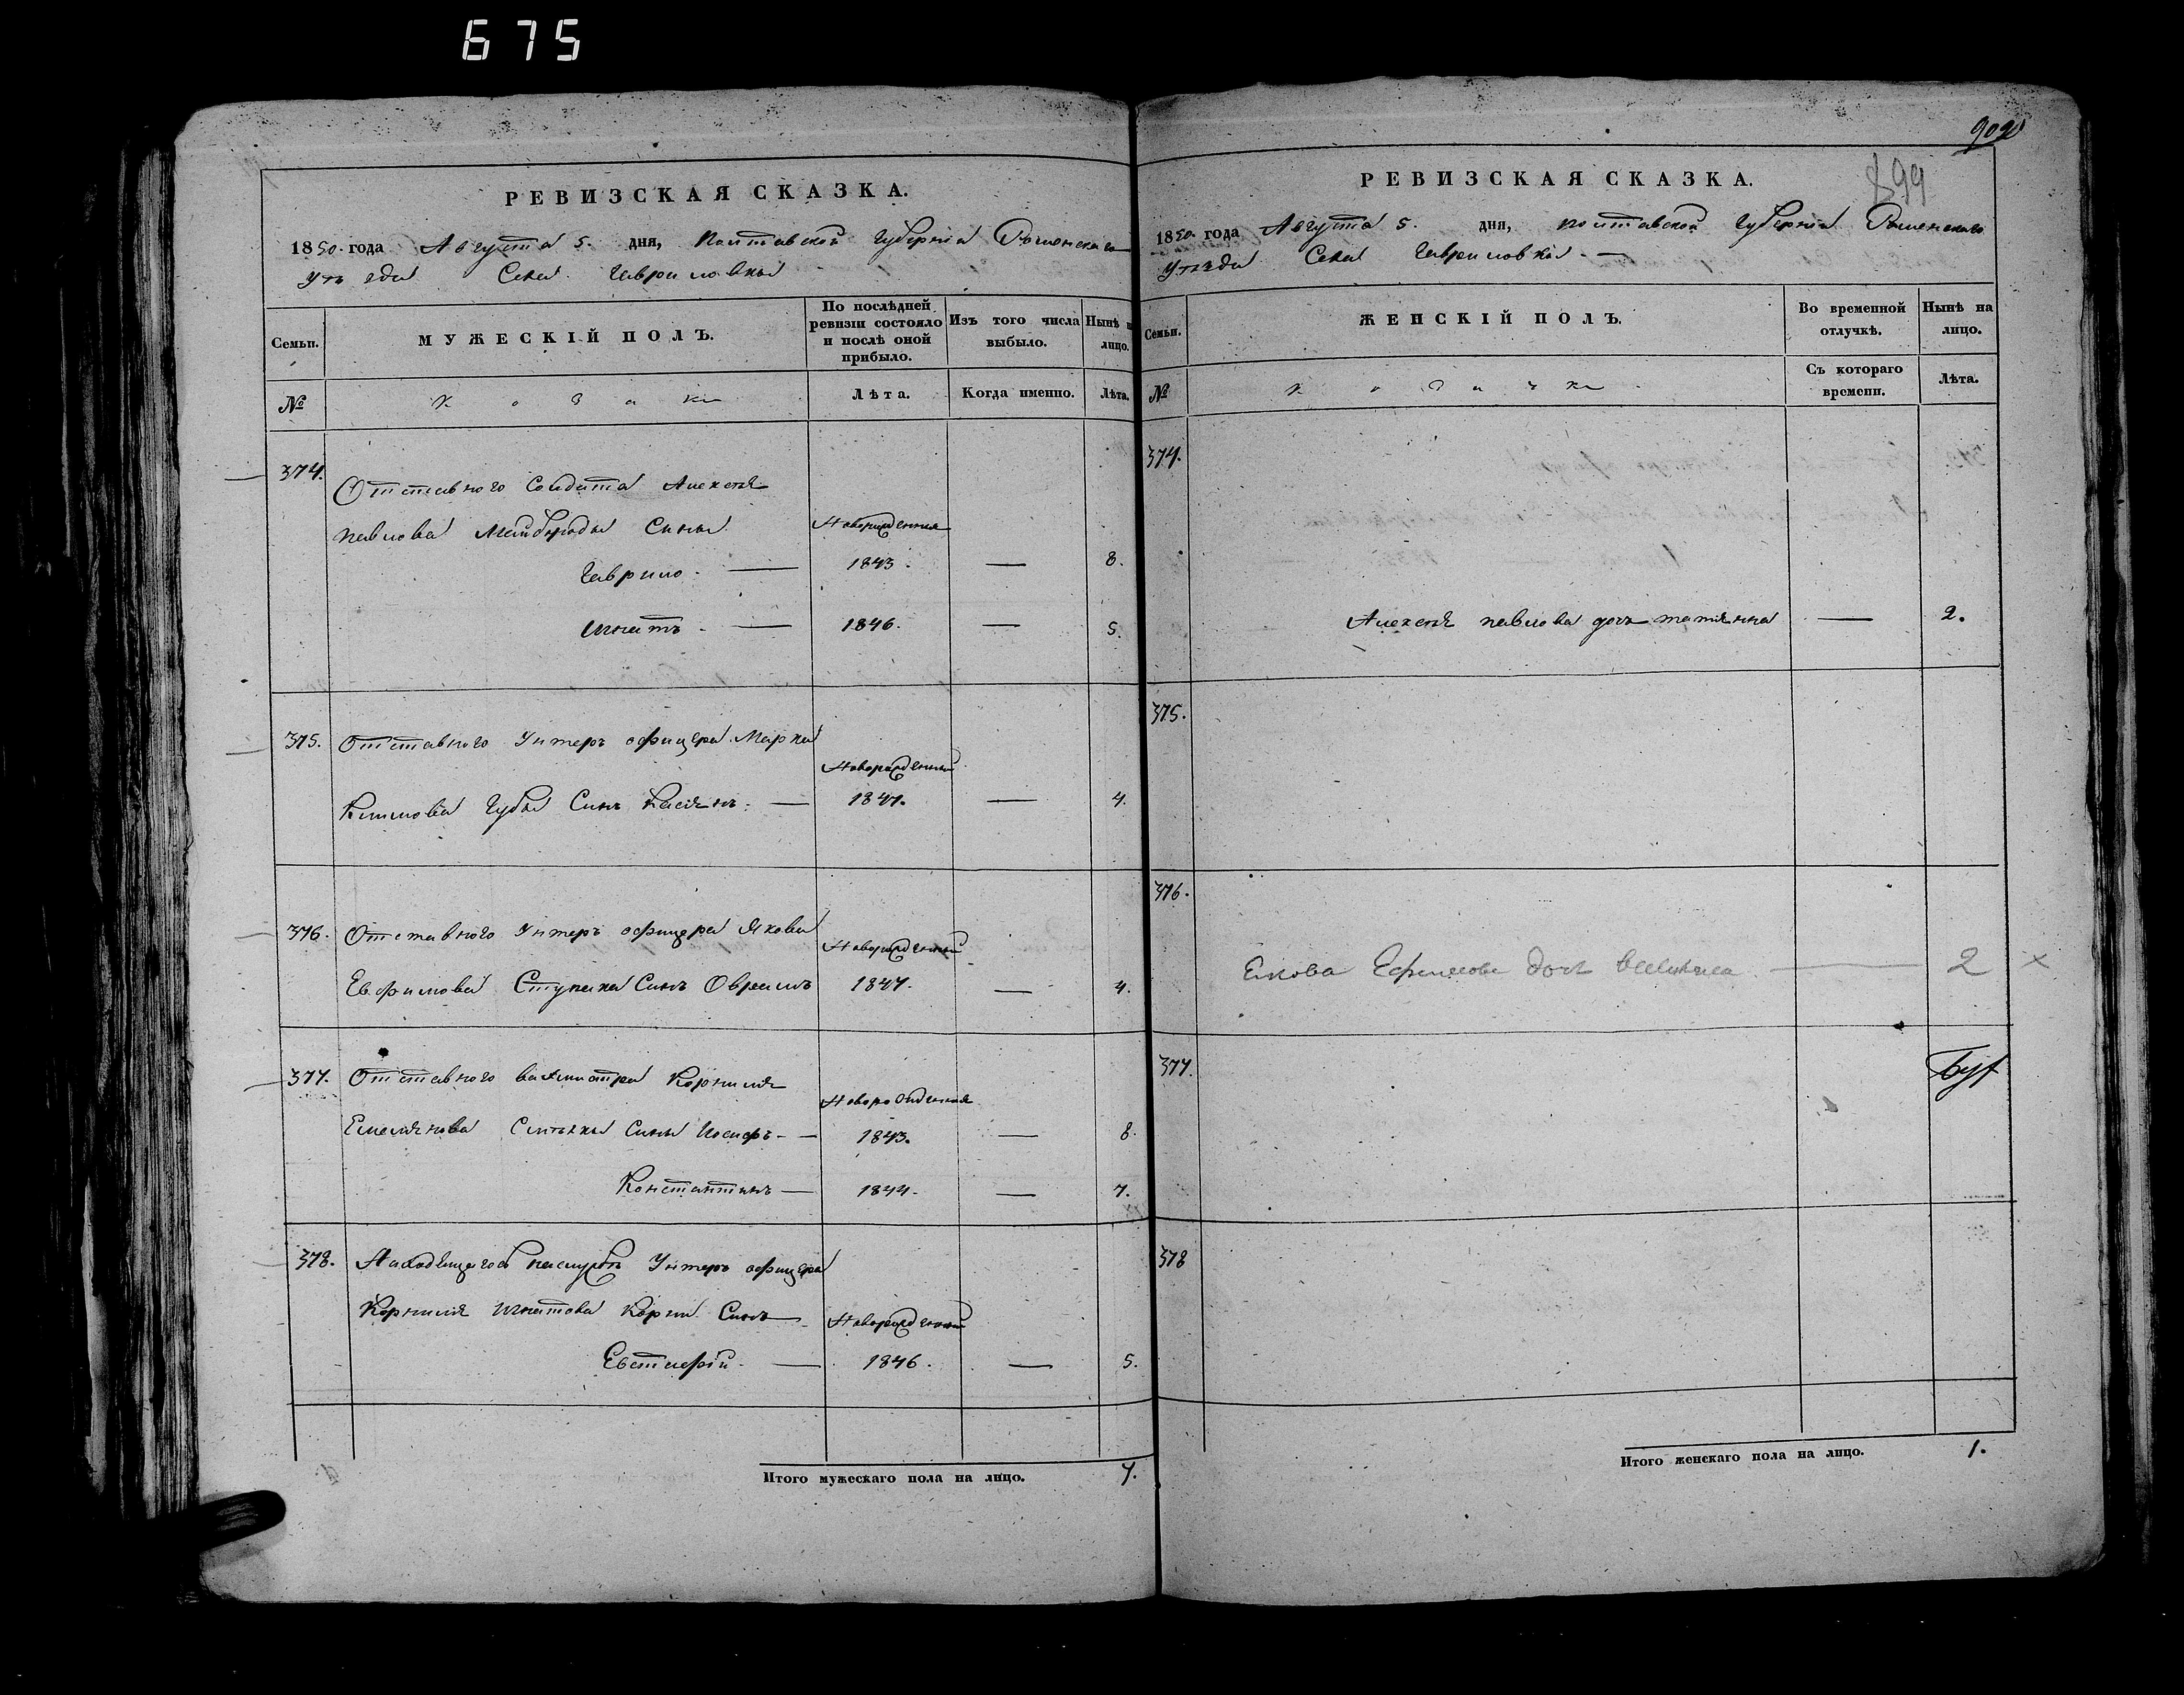 675
РЕВИЗСКАЯ СКАЗКА.
1850. года Августа 5. дня, Полтавской Губерніи Роменскаго
Уѣзда Села Гавриловки
Семьи. МУЖЕСКІЙ ПОЛЪ. По послѣдней ревизіи состояло и послѣ оной прибыло. Изъ того числа выбыло. Нынѣ на лицо.
№ Козаки Лѣта. Когда именно. Лѣта.
374. Отставного Солдата Алексея
Павлова Майбороды Сыны Новорожденныя
Гаврило. — 1843. — 8.
Игнатъ — 1846. — 5.
375. Отставного Унтеръ офицера Марка
Новорожденный
Климова Губы Сынъ Касіянъ. — 1847. — 4.
376. Отставного Унтеръ офицера Якова
Новорожденный
Евфимова Ступака Сынъ Овраамъ 1847. — 4.
377. Отставного вахмистра Корнилія
Новорожденныя
Емельянова Сыны Иосифъ — 1843. — 8.
Константинъ — 1844. — 7.
378. Находящагося наслужбѣ Унтеръ офицера
Корнилія Игнатова Сынъ Новорожденный
Евстафій. — 1846. — 5.
Итого мужескаго пола на лицо. 7.
902
899
РЕВИЗСКАЯ СКАЗКА.
1850. года Августа 5. дня, Полтавской Губерніи Роменскаго
Уѣзда Села Гавриловки —
Семьи. ЖЕНСКІЙ ПОЛЪ. Во временной отлучкѣ. Нынѣ на лицо.
№ Козачки Съ котораго времени. Лѣта.
374.
Алексея Павлова дочь Татіянна — 2.
375.
376.
Якова Ефимова дочь — 2 ×
377.
378
Итого женскаго пола на лицо. 1.